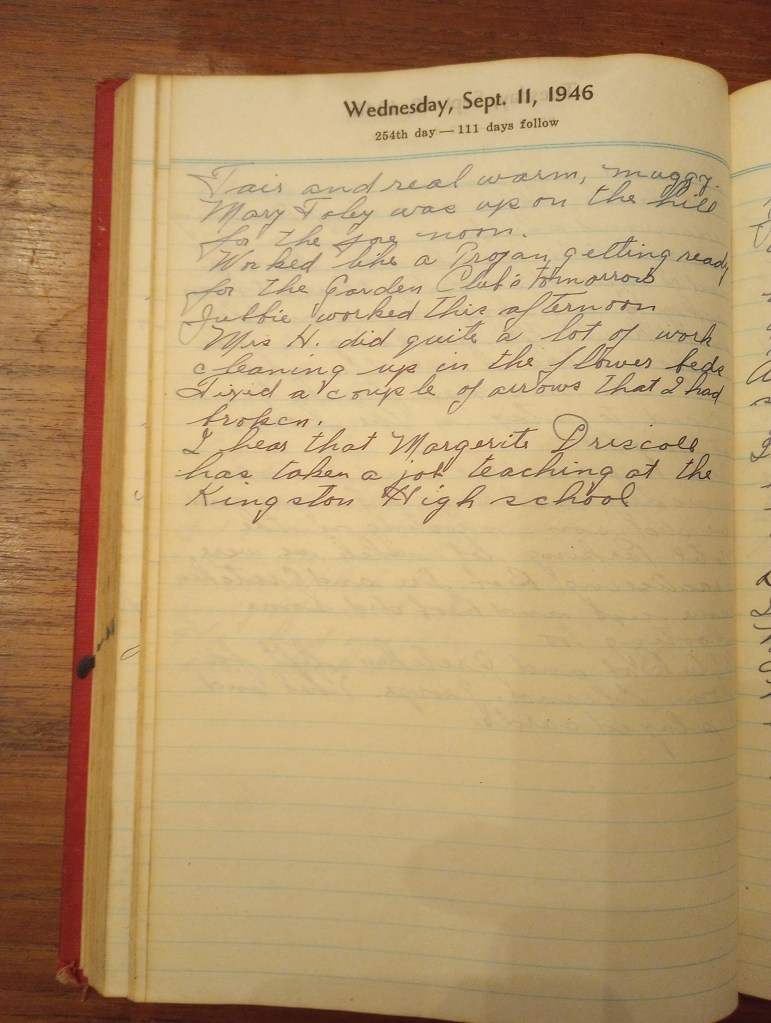 Wednesday, Sept. 11, 1946
254th day — 111 days follow
Fair and real warm, muggy.
Mary Foley was up on the hill
for the fore noon.
Worked like a Trojan, getting ready
for the Garden Club's tomorrow
Jubbie worked this afternoon
Mrs H. did quite a lot of work
cleaning up in the flower beds
Fixed a couple of arrows that I had
broken.
I hear that Margerite Driscoll
has taken a job teaching at the
Kingston High school